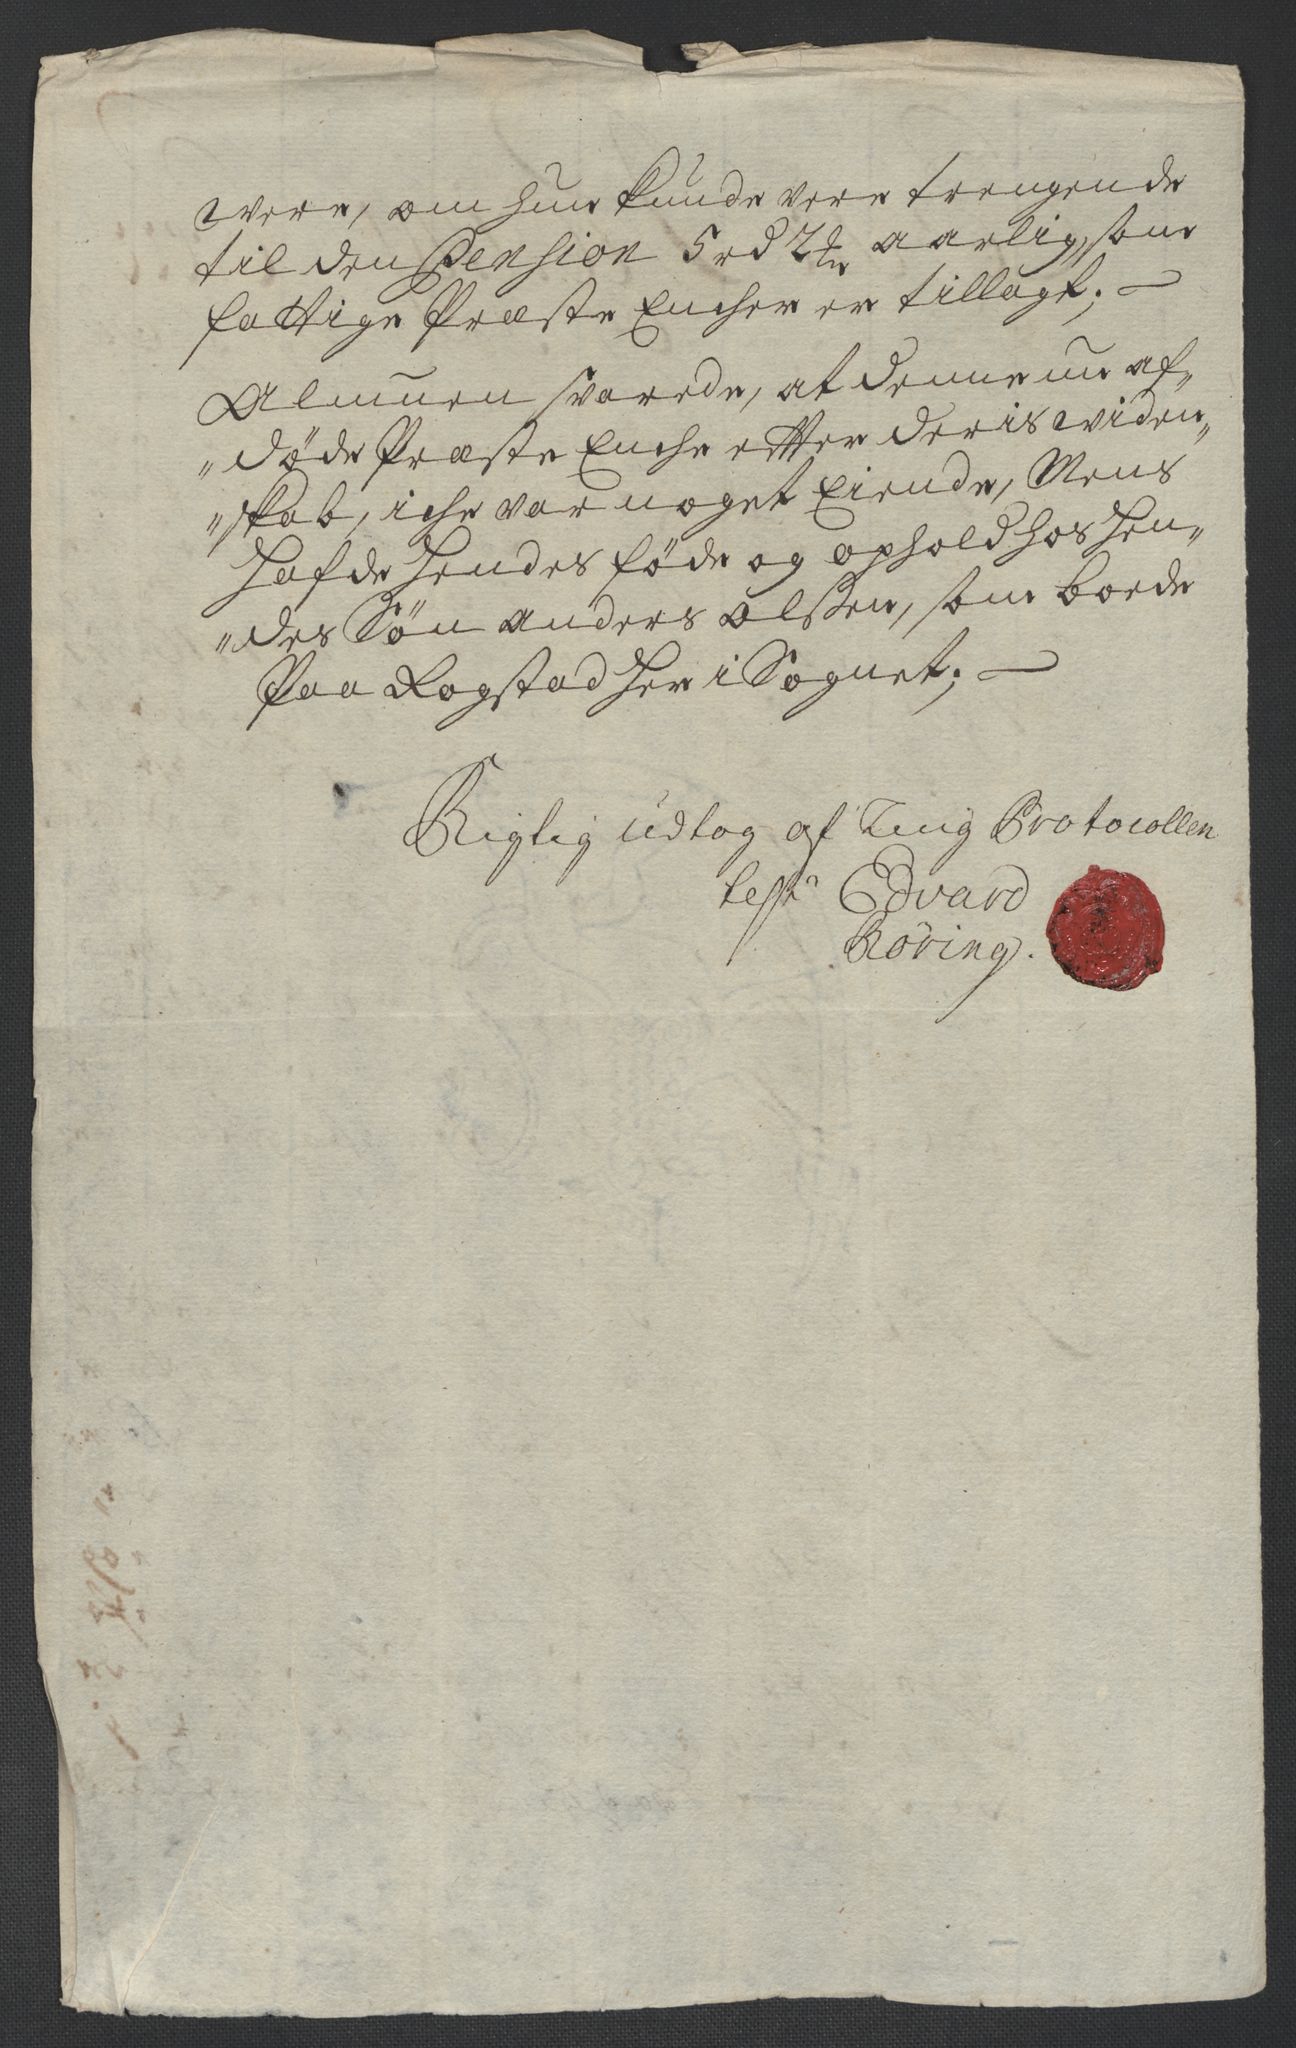 were, om hun kunde vere trengende
til den Pension 5 rd 2 aarlig, som
fattige Præste Encher er tillagt; —
Almuen svarede, at denne nu af„
„døde Præste Enche etter deris widen„
„skab, iche var noget Eiende, Mens
Hafde Hendes føde og ophold hos Hen„
„des Søn Anders Olssen, som boede
Paa Rogstad Her i Sognet; —
Rigtig udtog af Ting Protocollen
test Edvard
Röring.